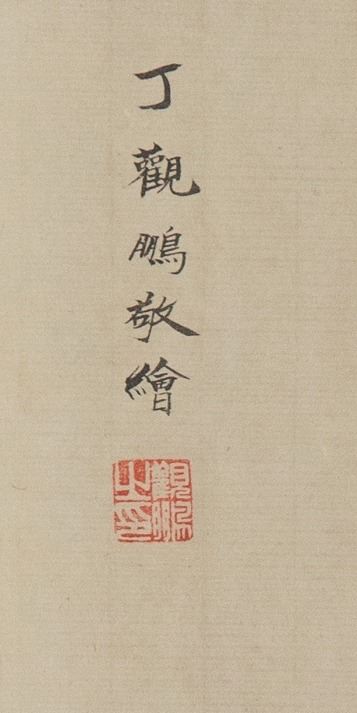 丁觀鵬敬繪
觀鵬
之印